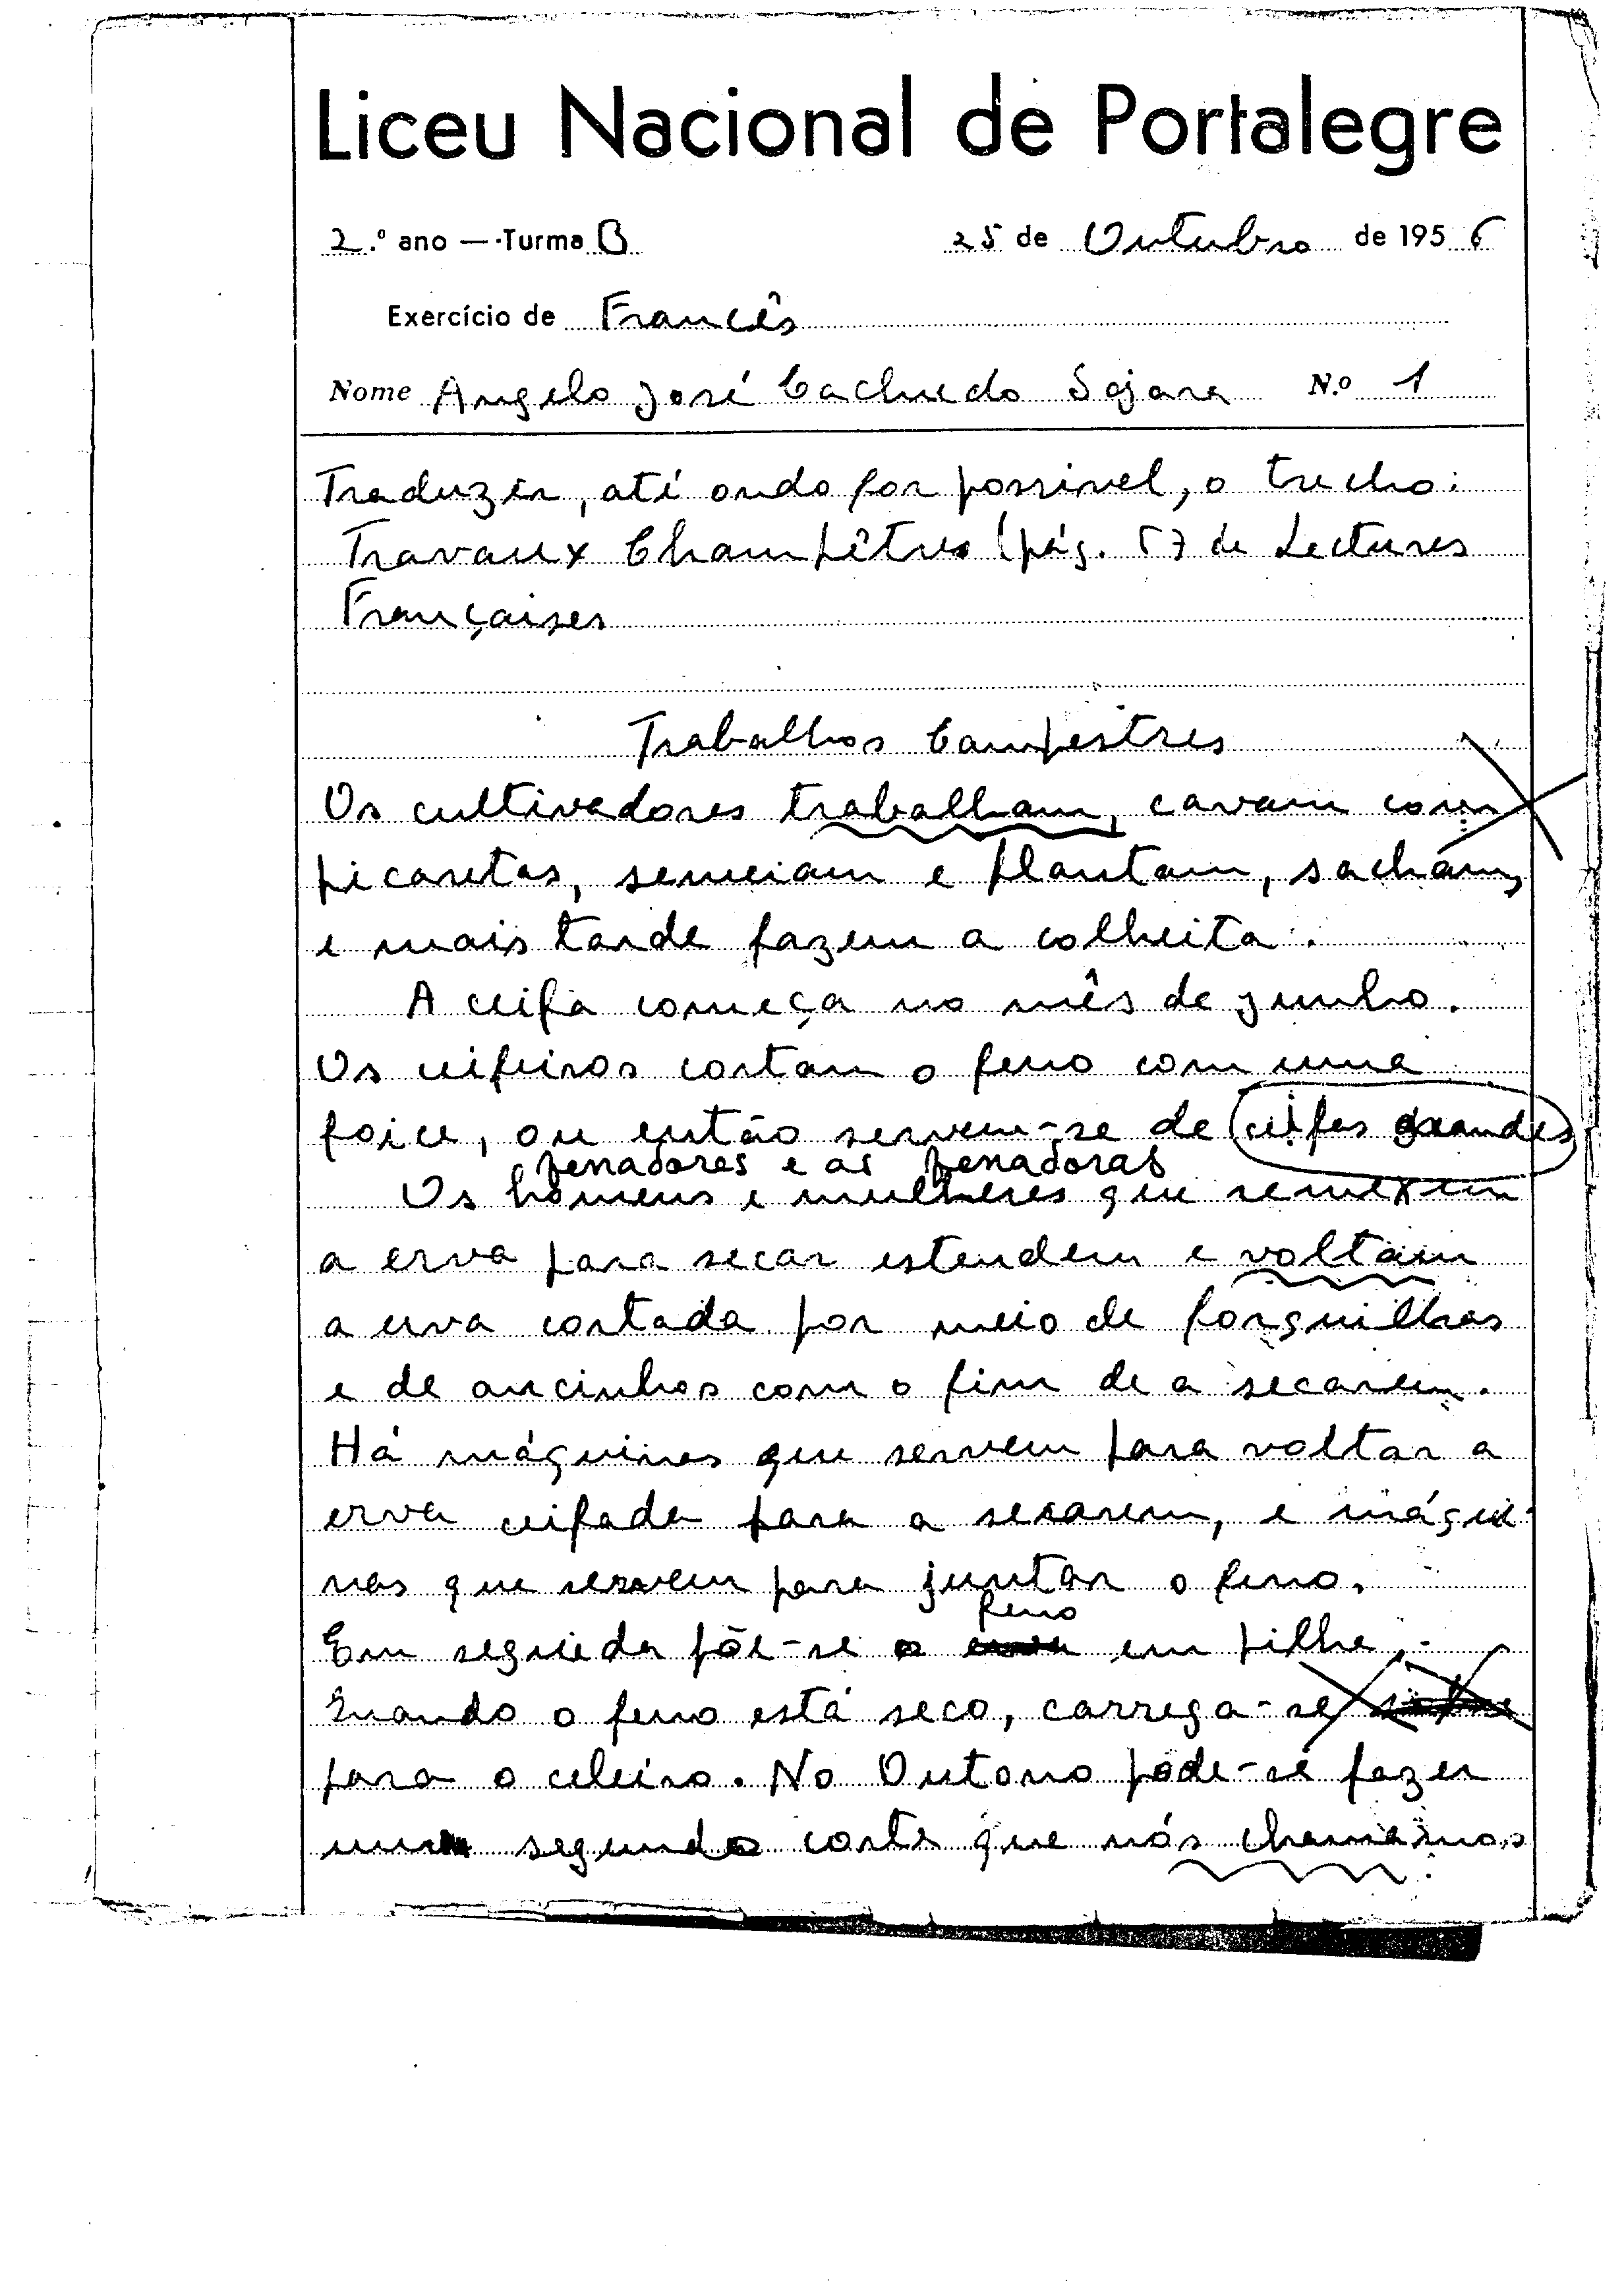 Liceu Nacional de Portalegre
2.º ano — Turma B 25 de Outubro de 1956
Exercício de Francês
Nome Angelo José Cachuedo Sajara N.º 1
Traduzir, até onde for possivel, o trecho:
Travaux Champêtres (pág. 57 de Lectures
Françaises
Trabalhos Campestres
Os cultivadores trabalham, cavam com
picaretas, semeiam e plantam, sacham,
e mais tarde fazem a colheita.
A ceifa começa no mês de junho.
Os ceifeiros cortam o feno com uma
foice, ou então servem-se de ceifes grandes
fenadores e as fenadoras
Os homens e mulheres que remexem
a erva para secar estendem e voltam
a erva cortada por meio de forquilhas
e de ancinhos com o fim de a secarem.
Há máquinas que servem para voltar a
erva ceifada para a secarem, e máqui-
nas que servem para juntar o feno.
feno
Em seguida põe-se o erva em pilha.
Quando o feno está seco, carrega-se
para o celeiro. No Outono pode-se fazer
um segundo corte que nós chamamos